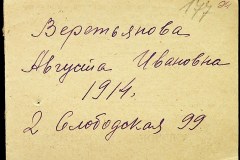 Веретьянова
Августа Ивановна
1914.
2 Слободская 99